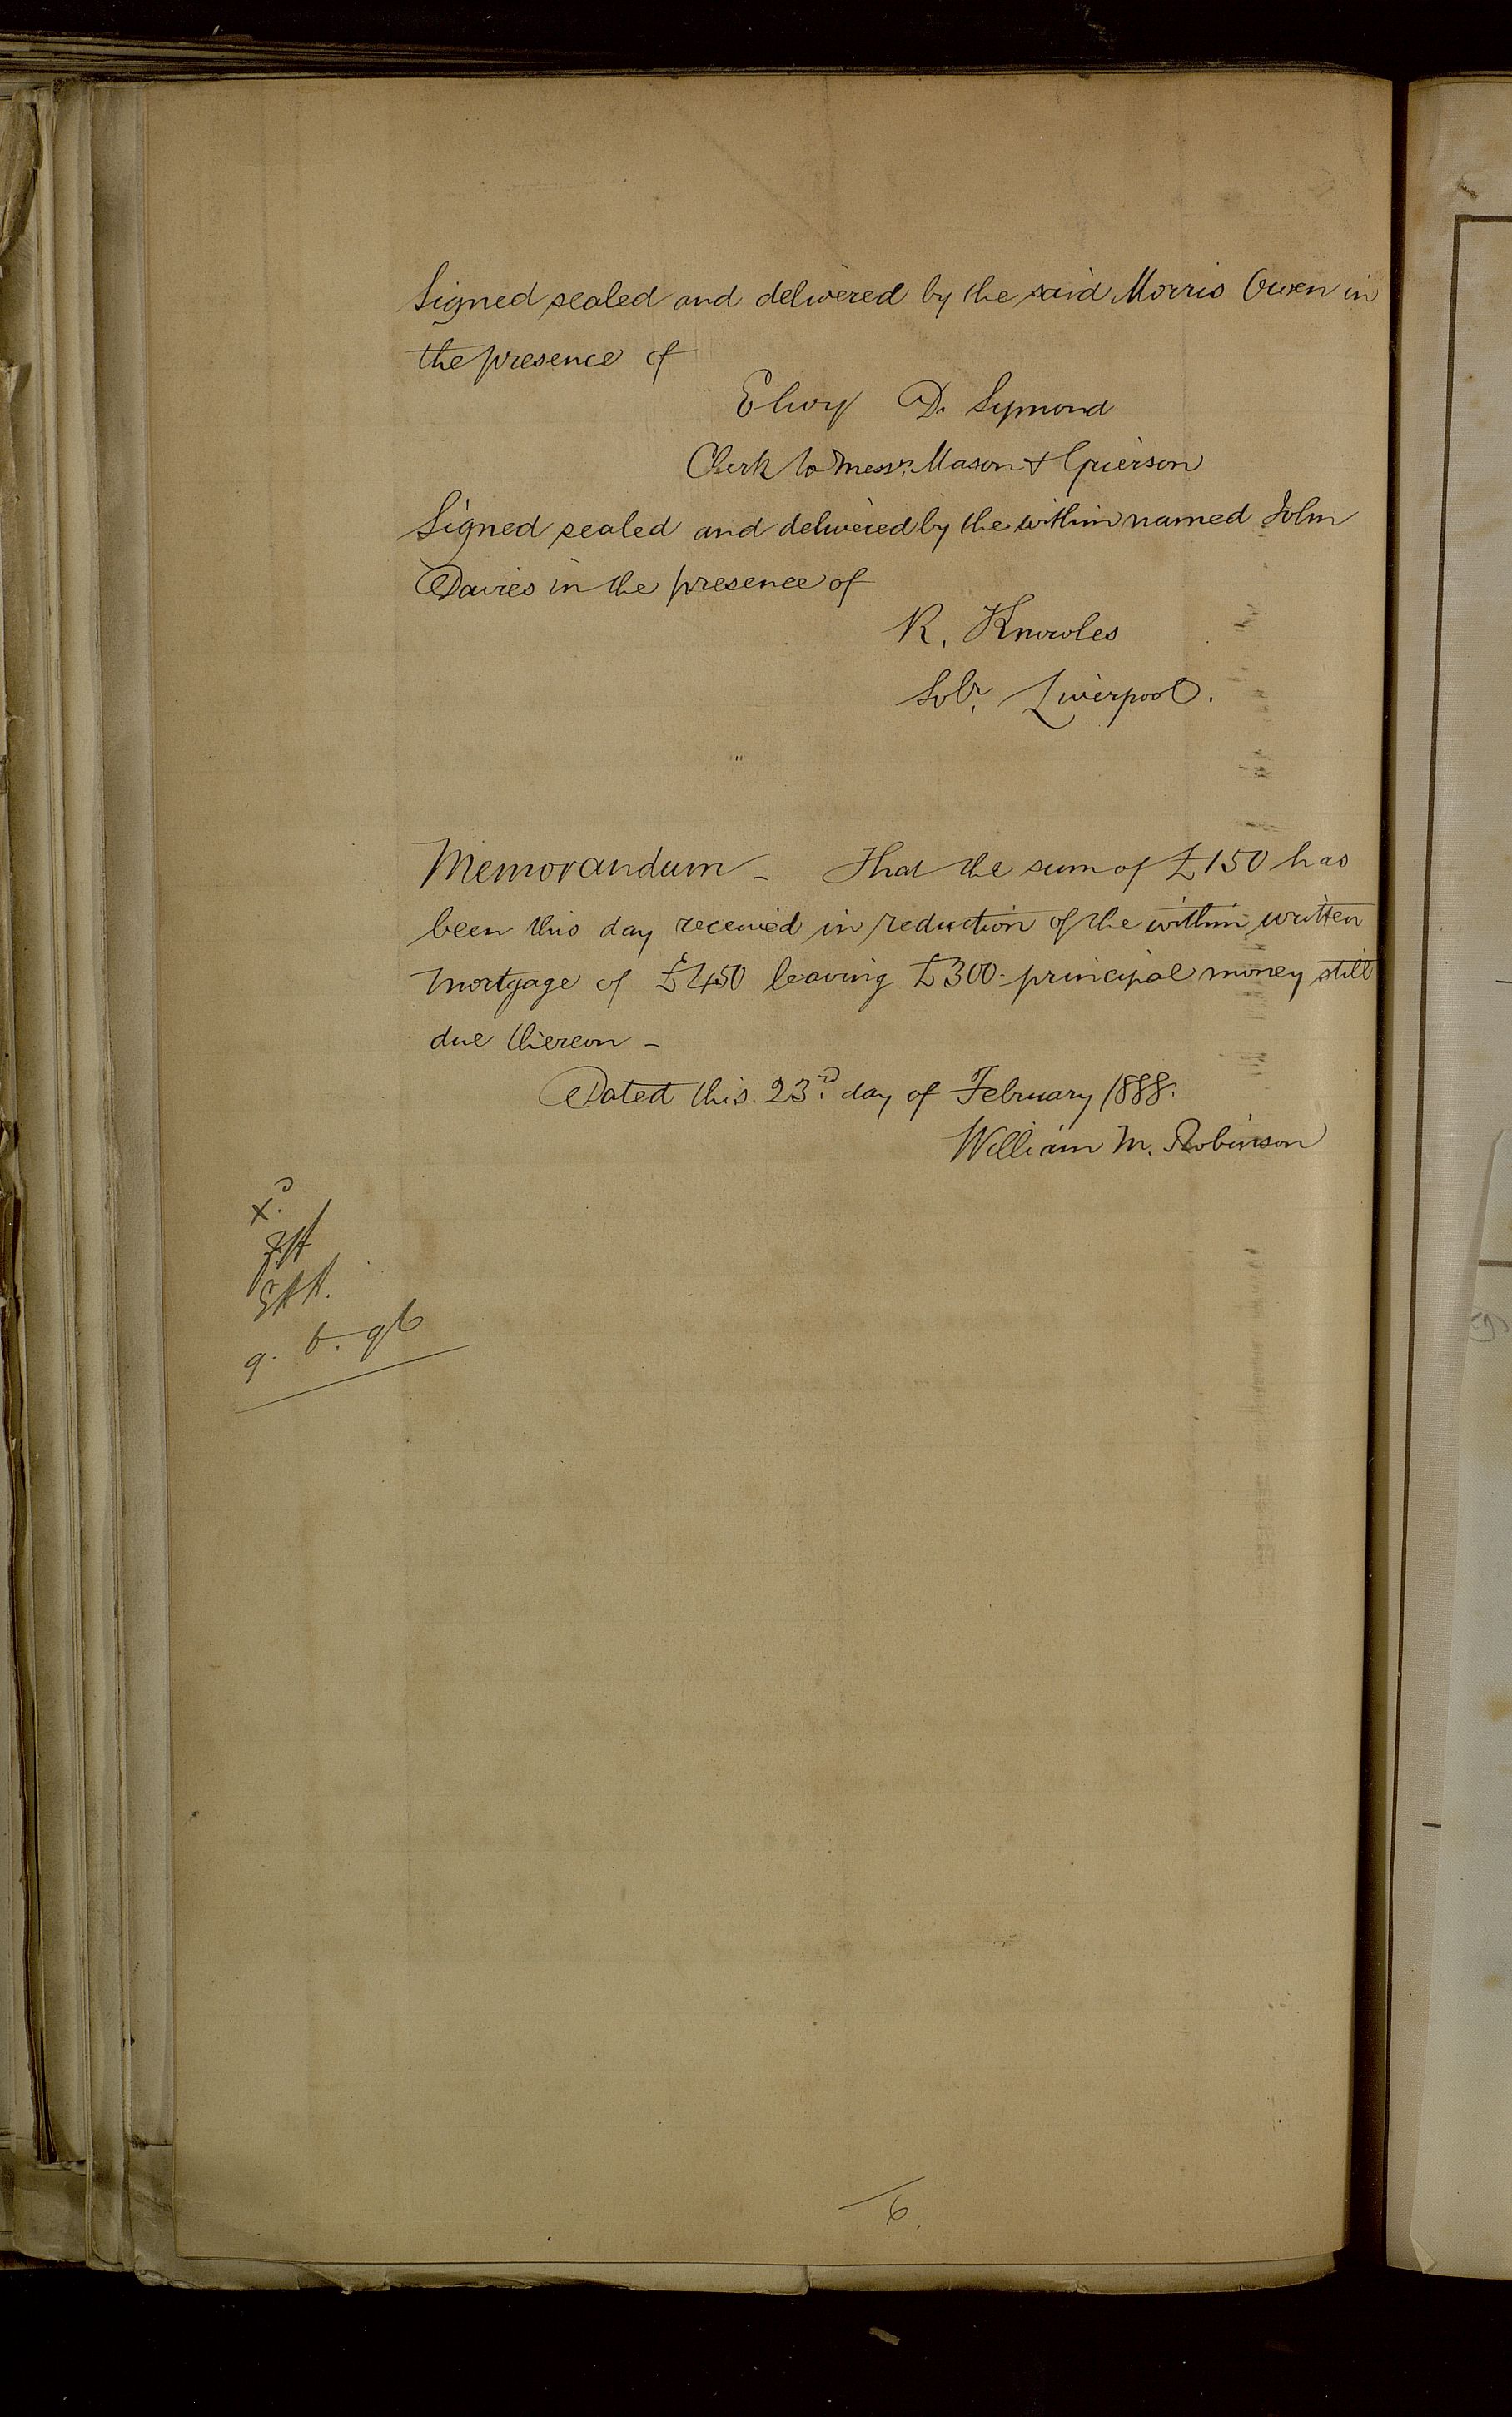 Signed sealed and delivered by the said Morris Owen in
the presence of
Elwy D. Symond
Clerk to Messrs. Mason & Grierson
Signed sealed and delivered by the within named John
Davies in the presence of
R. Knowles
Solr. Liverpool.
Memorandum - That the sum of £150 has
been this day received in reduction of the within written
mortgage of £450 leaving £300 principal money still
due thereon -
Dated this 23rd day of February 1888.
William M. Robinson
6.